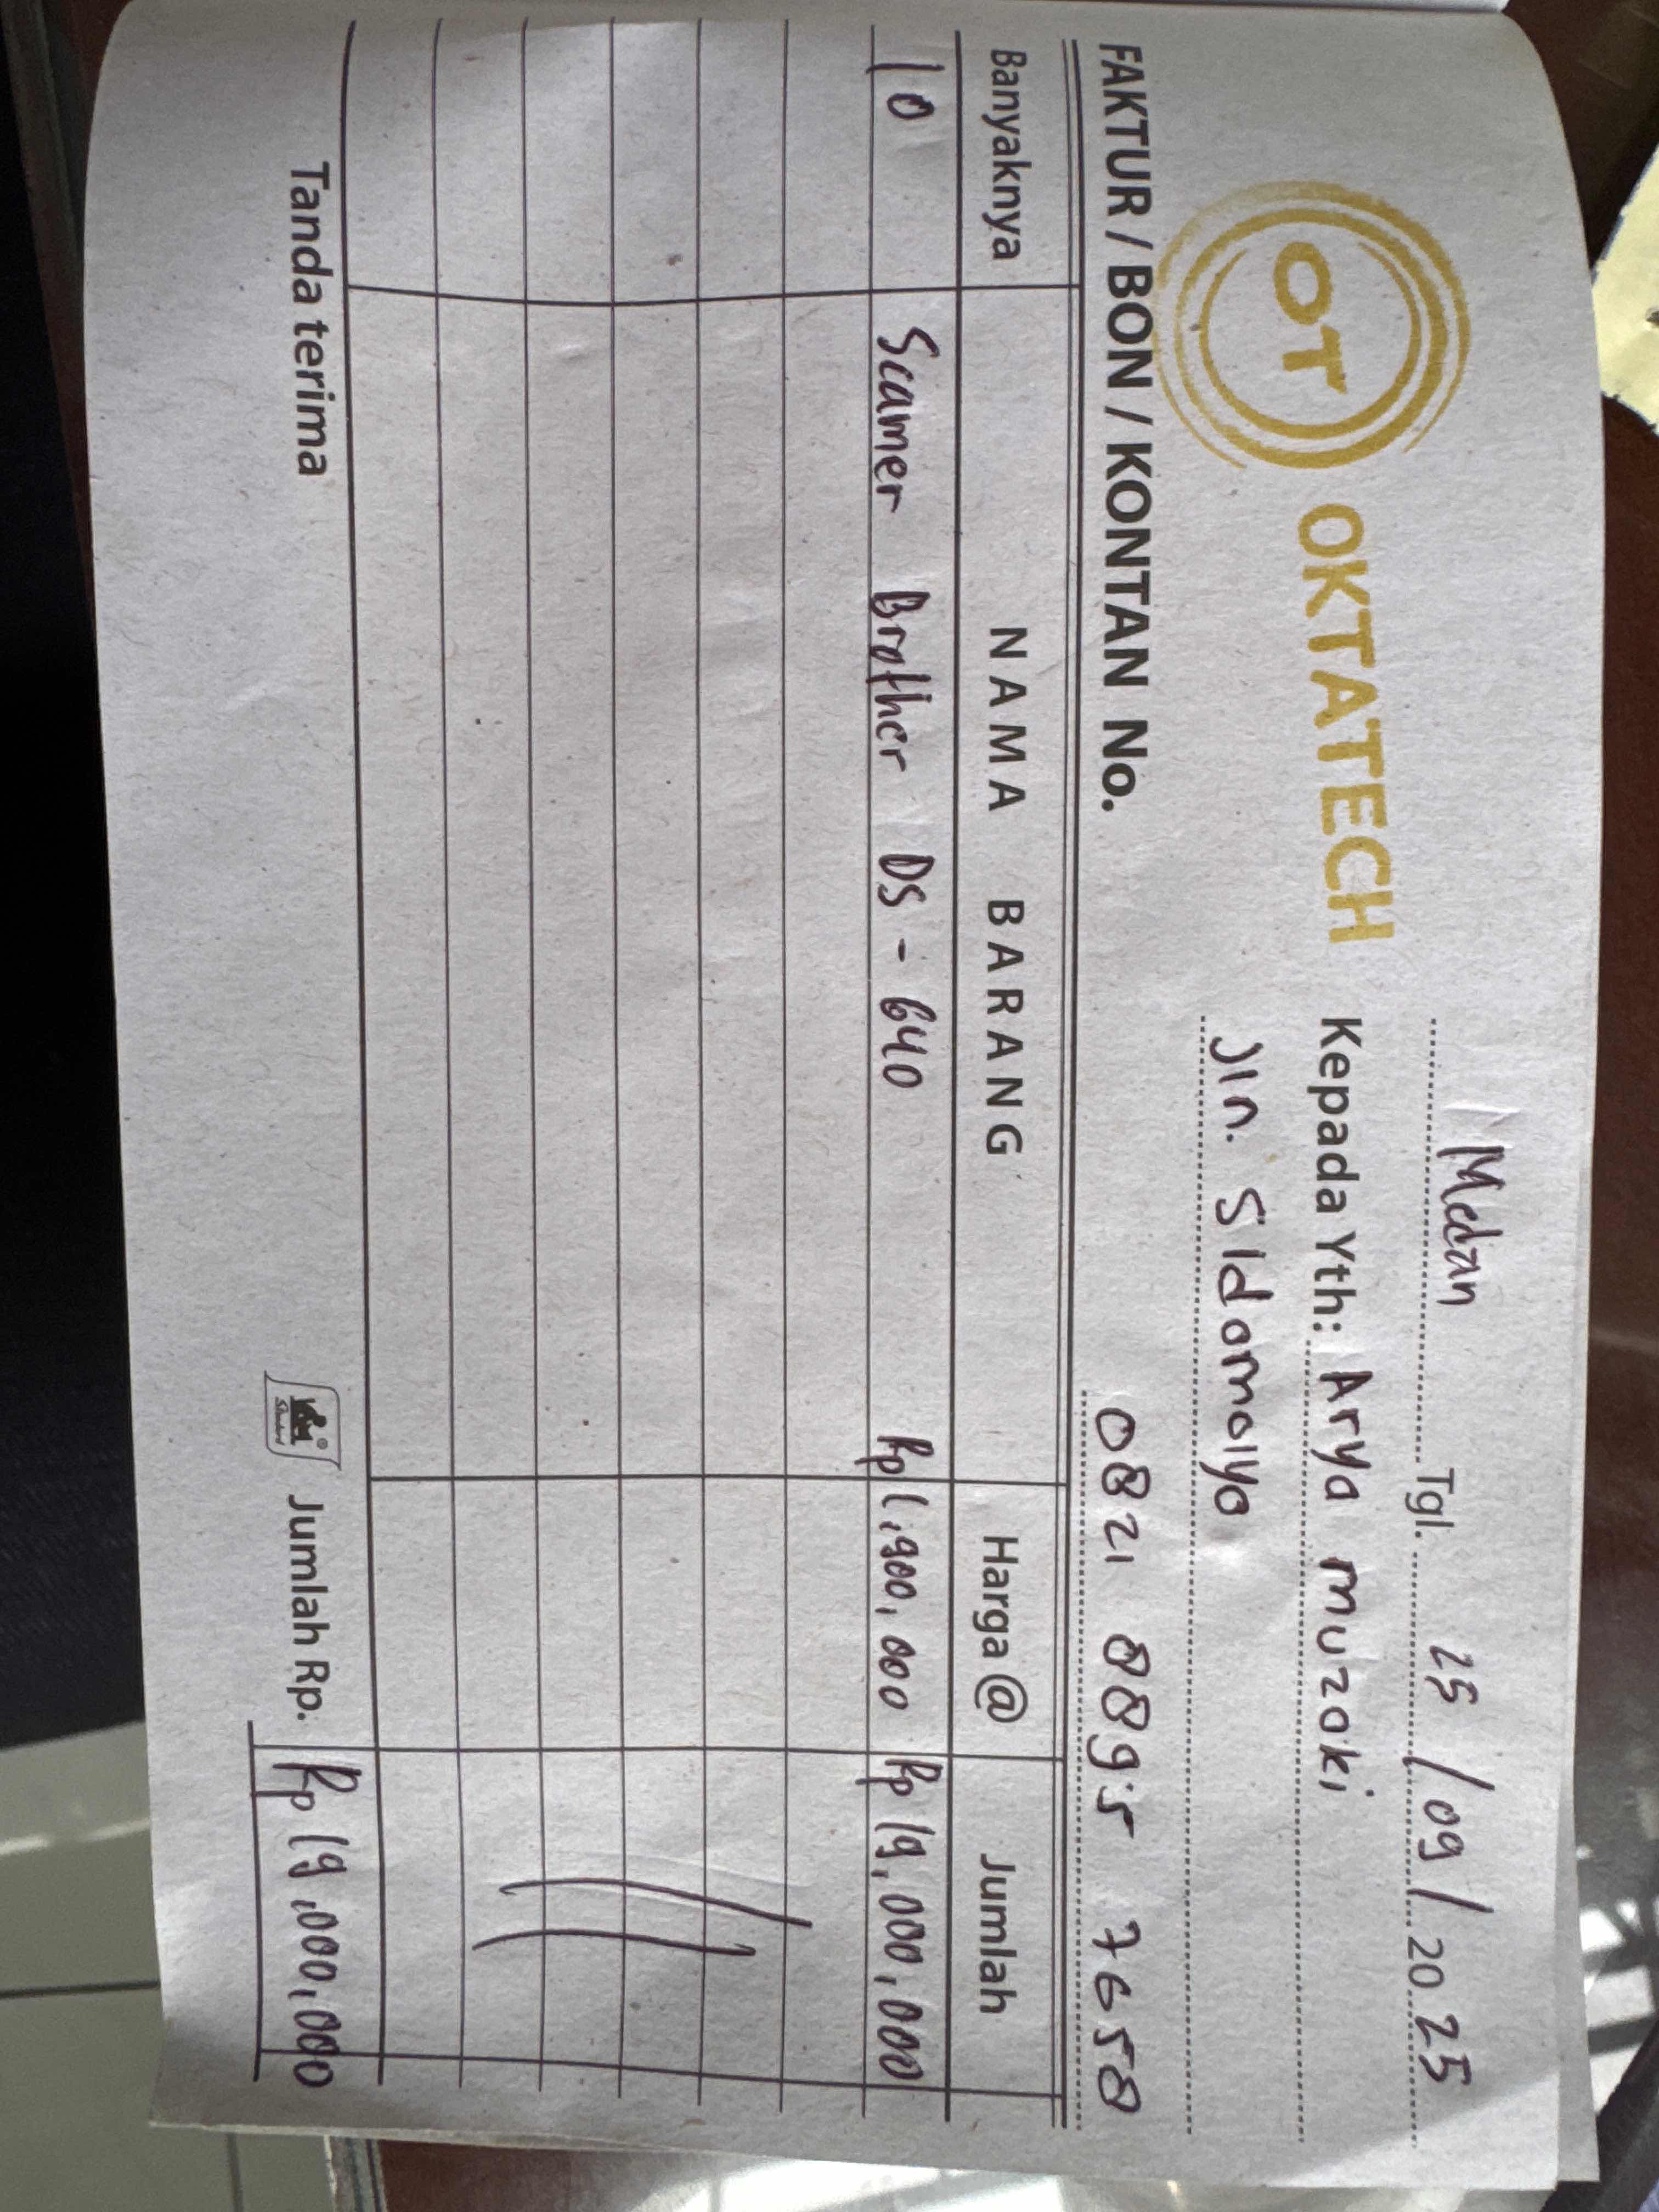 Medan Tgl. 25 / 09 / 20 25
OT OKTATECH
Kepada Yth: Arya muzoki
Jln. Sidomolyo
0821 8895 7658
FAKTUR / BON / KONTAN No.
Banyaknya NAMA BARANG Harga @ Jumlah
10 Scanner Brother DS - 640 Rp 1,900,000 Rp 19,000,000
Tanda terima Jumlah Rp. Rp 19,000,000